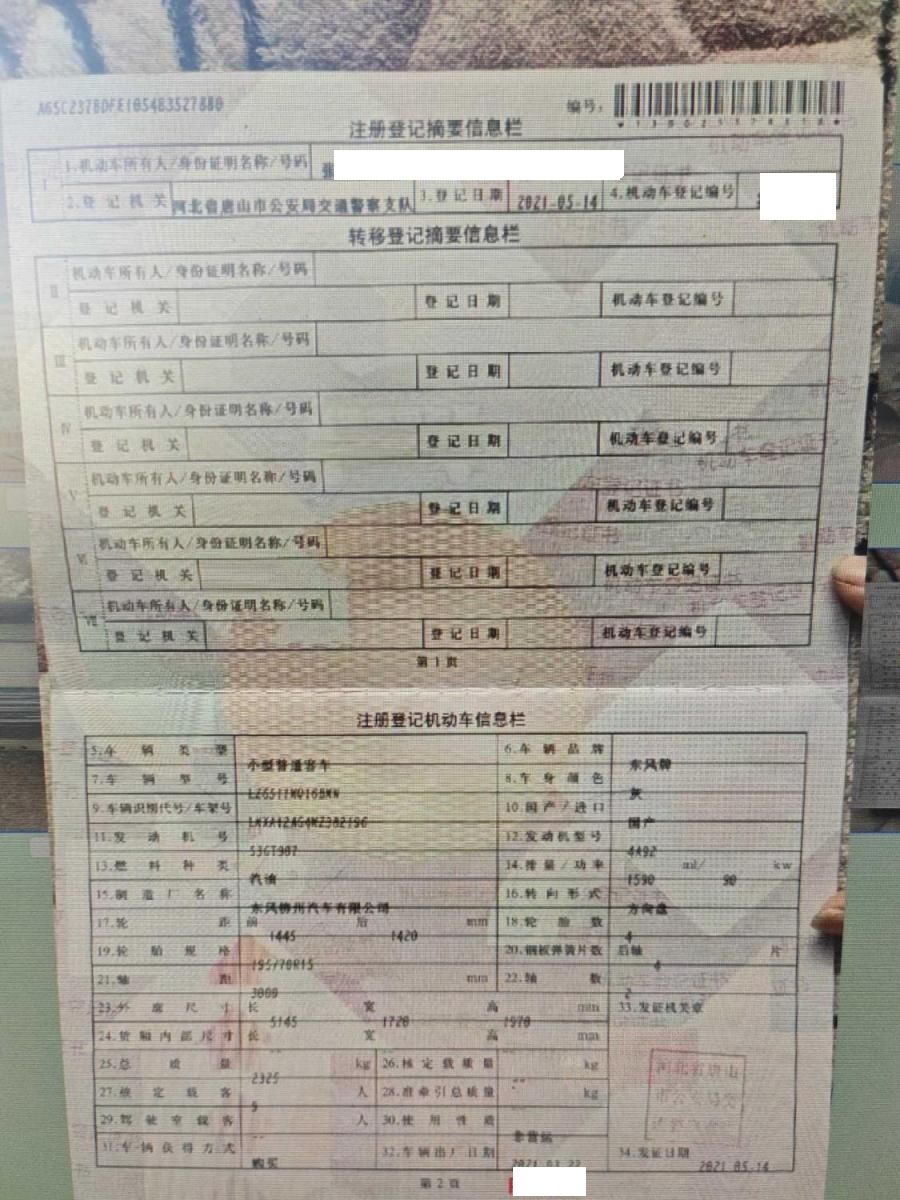 A65C2378DFE105483527880
编号:
*130025378318*
注册登记摘要信息栏
I 1.机动车所有人/身份证明名称/号码 张
2.登记机关 河北省唐山市公安局交通警察支队 3.登记日期 2021-05-14 4.机动车登记编号
转移登记摘要信息栏
II 机动车所有人/身份证明名称/号码
登记机关 登记日期 机动车登记编号
III 机动车所有人/身份证明名称/号码
登记机关 登记日期 机动车登记编号
IV 机动车所有人/身份证明名称/号码
登记机关 登记日期 机动车登记编号
V 机动车所有人/身份证明名称/号码
登记机关 登记日期 机动车登记编号
VI 机动车所有人/身份证明名称/号码
登记机关 登记日期 机动车登记编号
VII 机动车所有人/身份证明名称/号码
登记机关 登记日期 机动车登记编号
第1页
注册登记机动车信息栏
5.车辆类型 小型普通客车 6.车辆品牌 东风牌
7.车辆型号 8.车身颜色 灰
9.车辆识别代号/车架号 10.国产/进口 国产
11.发动机号 12.发动机型号 4A92
13.燃料种类 汽油 14.排量/功率 1590 ml/ 90 kw
15.制造厂名称 东风柳州汽车有限公司 16.转向形式 方向盘
17.轮距 前 1445 后 1420 mm 18.轮胎数 4
19.轮胎规格 195/70R15 20.钢板弹簧片数 后轴 4 片
21.轴距 3000 mm 22.轴数 2
23.外廓尺寸 长 5145 宽 1720 高 1970 mm 33.发证机关章
24.货厢内部尺寸 长 宽 高 mm
25.总质量 2325 kg 26.核定载质量 -- kg
27.核定载客 9 人 28.准牵引总质量 -- kg
29.驾驶室载客 -- 人 30.使用性质 非营运
31.车辆获得方式 购买 32.车辆出厂日期 2021-03-22 34.发证日期 2021-05-14
第2页